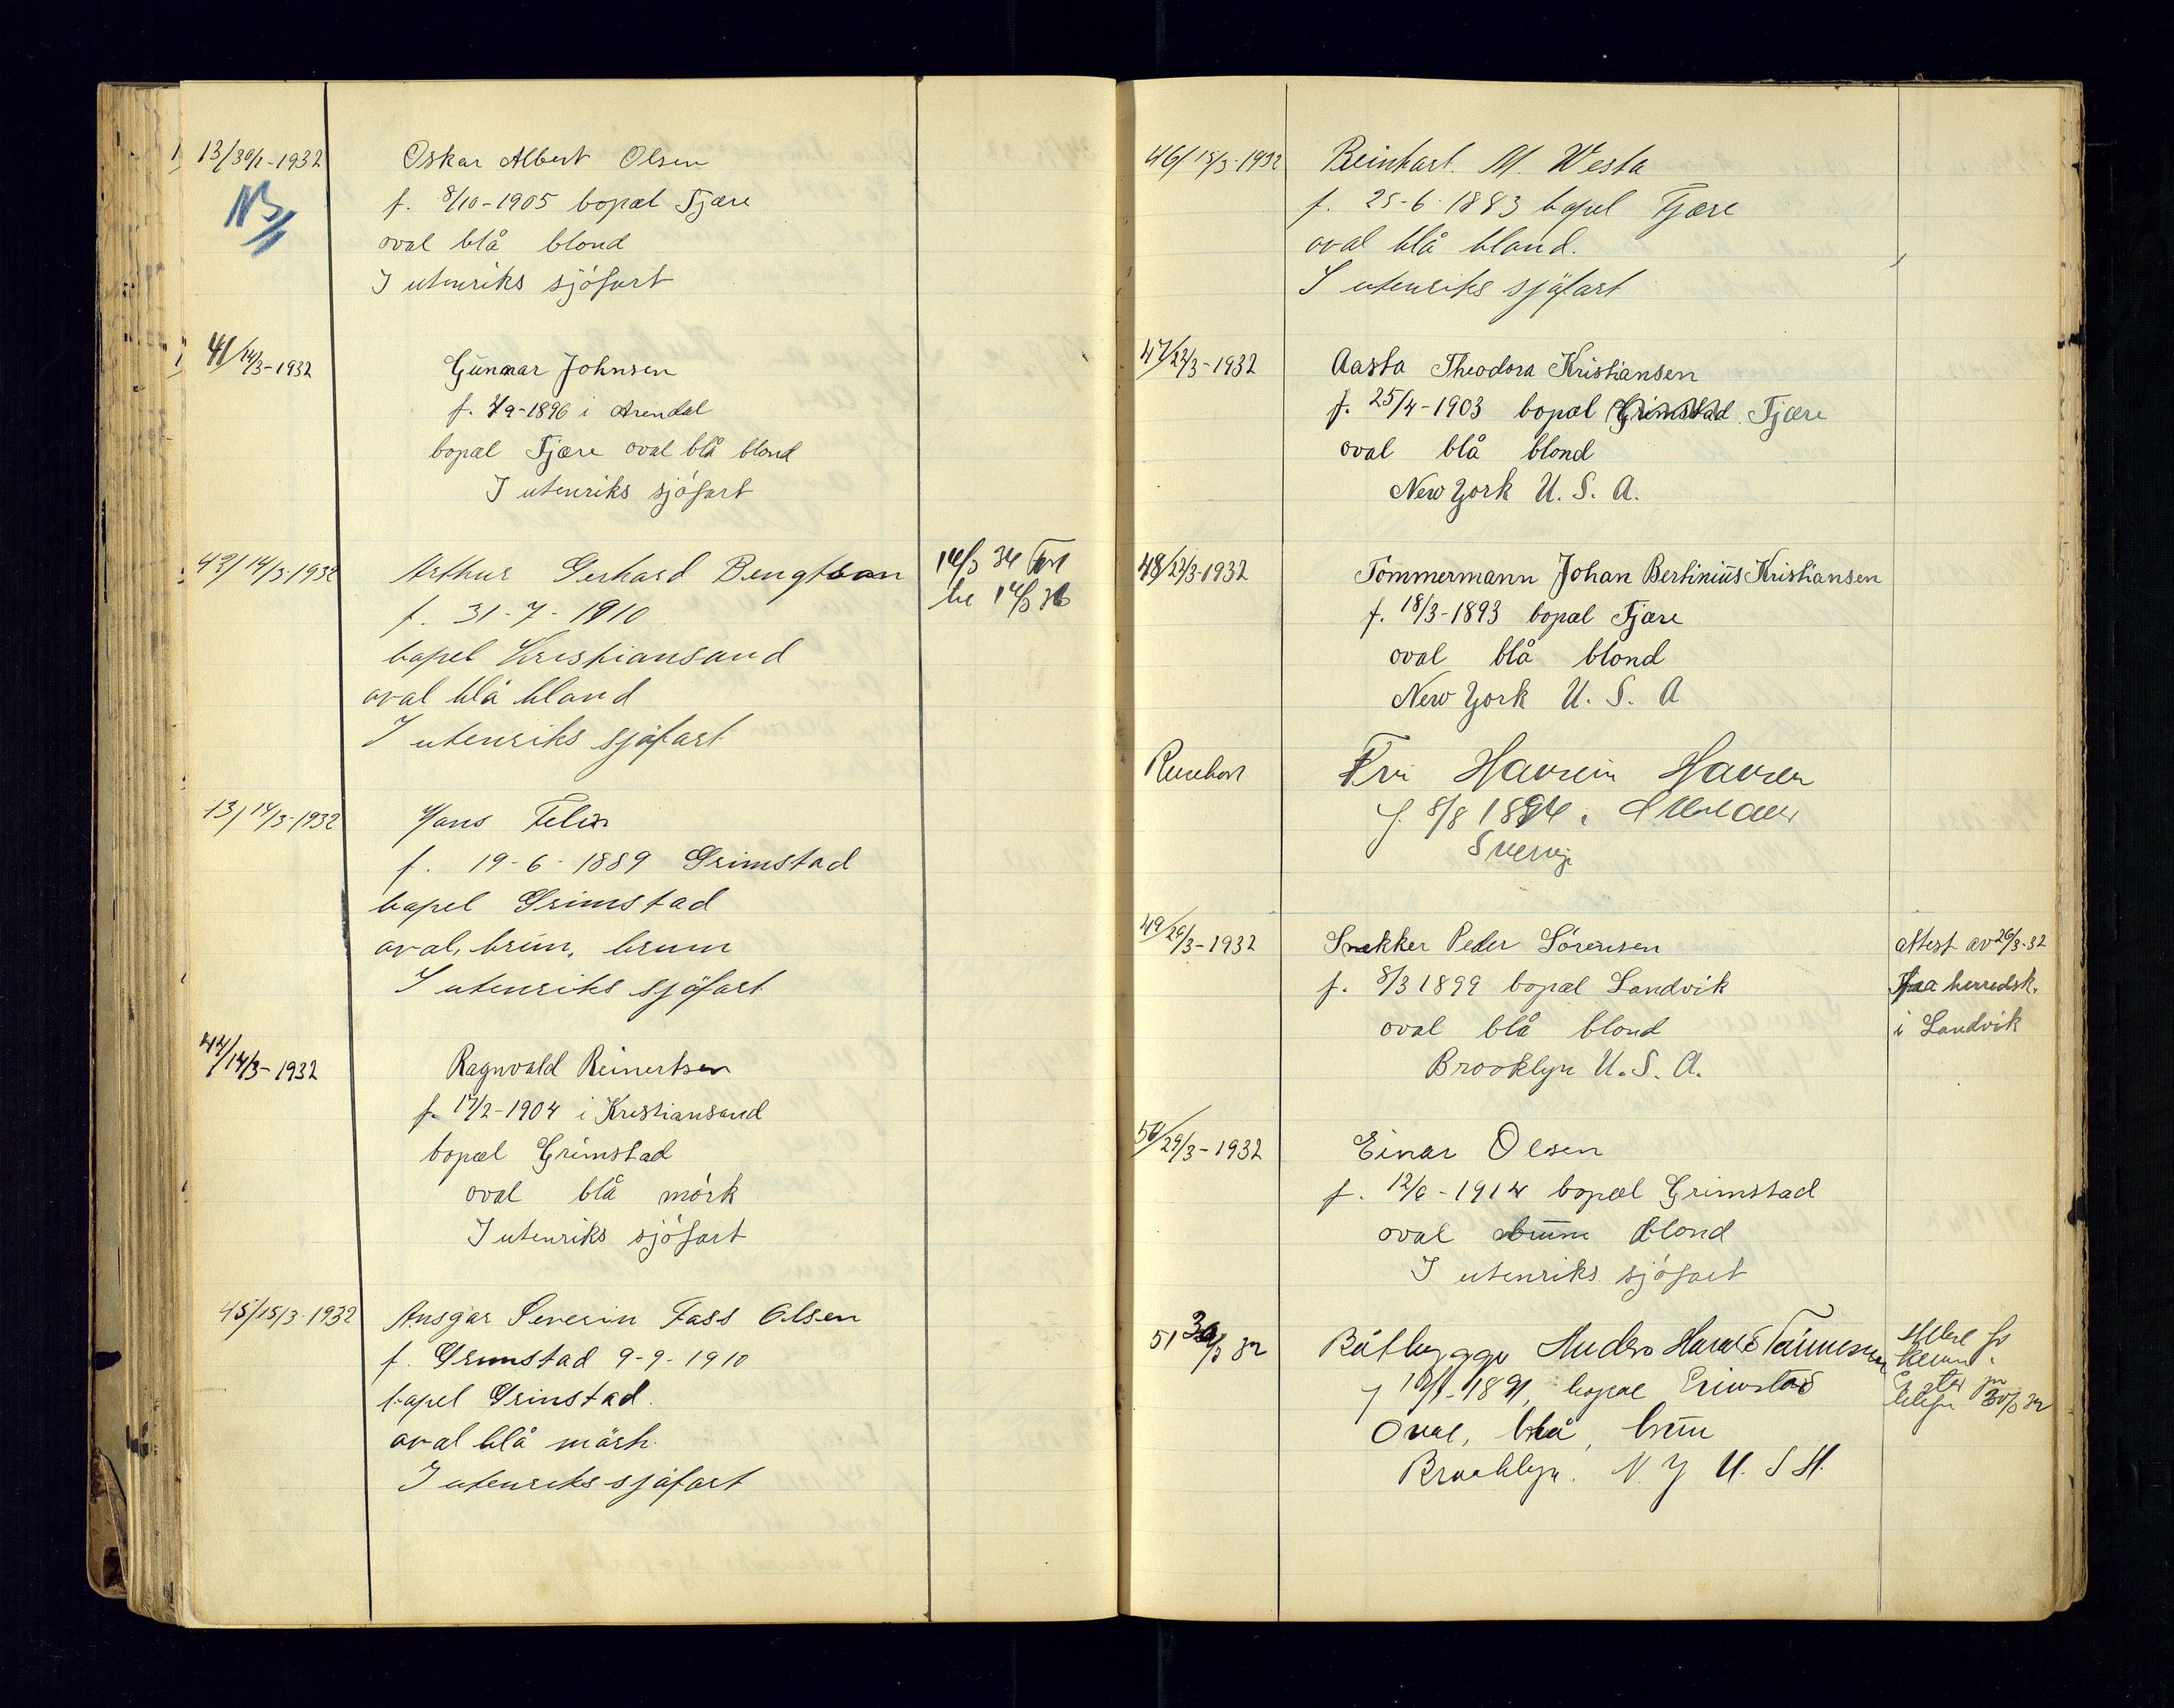 13/30/1-1932 Oskar Albert Olsen
NB
f. 8/10-1905 bopæl Fjære
oval blå blond
I utenriks sjöfart
41/14/3-1932 Gunnar Johnsen
f. 7/9-1896 i Arendal
bopæl Fjære oval blå blond
I utenriks sjöfart
42/14/3-1932 Arthur Gerhard Bengtson
f. 31-7-1910
bopel Kristiansand
oval blå blond
I utenriks sjöfart
14/3 34
14/3 36
43/14/3-1932 Hans Felix
f. 19-6-1889 Grimstad
bopel Grimstad
oval, brun, brun
I utenriks sjöfart
44/14/3-1932 Ragnvald Reinertsen
f. 17/2-1904 i Kristiansand
bopæl Grimstad
oval blå mörk
I utenriks sjöfart
45/15/3-1932 Ansgar Severin Fass Olsen
f. Grimstad 9-9-1910
bopel Grimstad.
oval blå mörk
I utenriks sjöfart
46/15/3-1932 Reinhart. M. Westa
f. 25-6-1883 bopel Fjære
oval blå blond.
I utenriks sjöfart
47/22/3-1932 Aasta Theodora Kristiansen
f. 25/4-1903 bopæl Grimstad Fjære
oval blå blond
New York U. S. A.
48/22/3-1932 Tömmermann Johan Bertinius Kristiansen
f. 18/3-1893 bopæl Fjære
oval blå blond
New York U. S. A
f. 8/8 1894 i
Sverige
49/26/3-1932 Snekker Peder Sörensen
f. 8/3 1899 bopæl Landvik
oval blå blond
Brooklyn U. S. A.
Attest av 26/3-32
fraa herredsk.
i Landvik
50/29/3-1932 Einar Olsen
f. 12/6-1914 bopæl Grimstad
oval brun blond
I utenriks sjöfart
51 30/3 32 Båtbygger Anders Harald Tönnesen
f 10/1-1891, bopæl Grimstad
Oval, blå, brun
Brooklyn. N. Y U. S A.
30/3 32